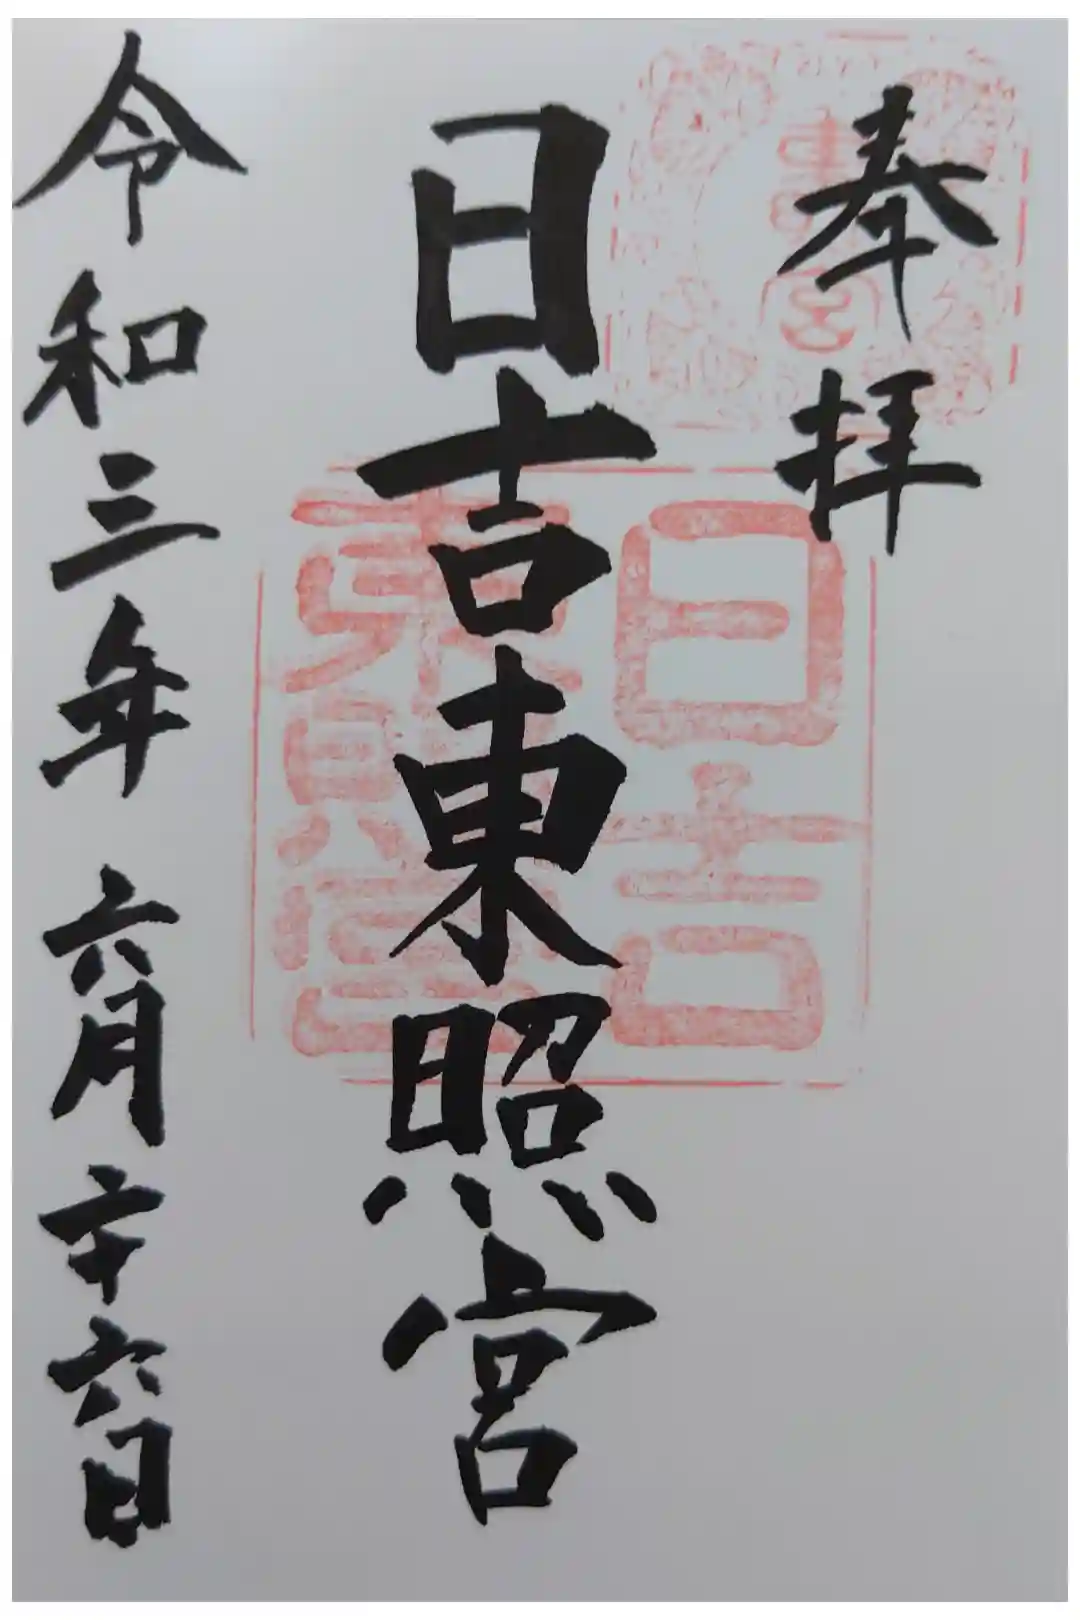 奉拝
日吉東照宮
令和三年 六月二十六日
日吉
東照宮